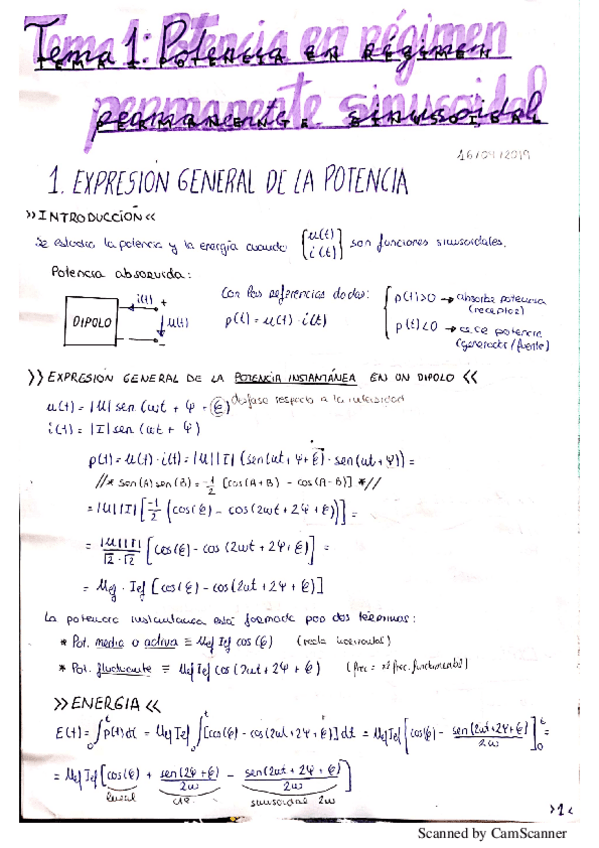 Tema 1: Potencia en régimen
permanente sinusoidal
16/04/2019
1. EXPRESIÓN GENERAL DE LA POTENCIA
>> INTRODUCCIÓN <<
Se estudia la potencia y la energía cuando [u(t) i(t)] son funciones sinusoidales.
Potencia absorvida:
DIPOLO i(t) + u(t) -
Con las referencias dadas:
p(t) = u(t) · i(t)
p(t)>0 → absorbe potencia
(receptor)
p(t)<0 → cede potencia
(generador/fuente)
>> EXPRESIÓN GENERAL DE LA POTENCIA INSTANTÁNEA EN UN DIPOLO <<
u(t) = |U| sen (ωt + φ + ϵ) desfase respecto a la intensidad
i(t) = |I| sen (ωt + φ)
p(t) = u(t) · i(t) = |U||I| (sen(ωt + φ + ϵ) · sen(ωt + φ)) =
//* sen(A) sen(B) = -1/2 [cos(A+B) - cos(A-B)] *//
= |U||I| [-1/2 (cos(ϵ) - cos(2ωt + 2φ + ϵ))] =
= |U||I| / √2·√2 [cos(ϵ) - cos(2ωt + 2φ + ϵ)] =
= Uef · Ief [cos(ϵ) - cos(2ωt + 2φ + ϵ)]
La potencia instantanea está formada por dos términos:
* Pot. media o activa ≡ Uef Ief cos(ϵ) (recta horizontal)
* Pot. fluctuante ≡ Uef Ief cos(2ωt + 2φ + ϵ)
>> ENERGIA <<
E(t) = ∫₀ᵗ p(t) dt = Uef Ief ∫₀ᵗ [cos(ϵ) - cos(2ωt + 2φ + ϵ)] dt = Uef Ief [cos(ϵ) - sen(2ωt + 2φ + ϵ)/2ω]₀ᵗ =
= Uef Ief [cos(ϵ) + sen(2φ + ϵ)/2ω - sen(2ωt + 2φ + ϵ)/2ω]
lineal cte. sinusoidal 2ω
>1<
Scanned by CamScanner